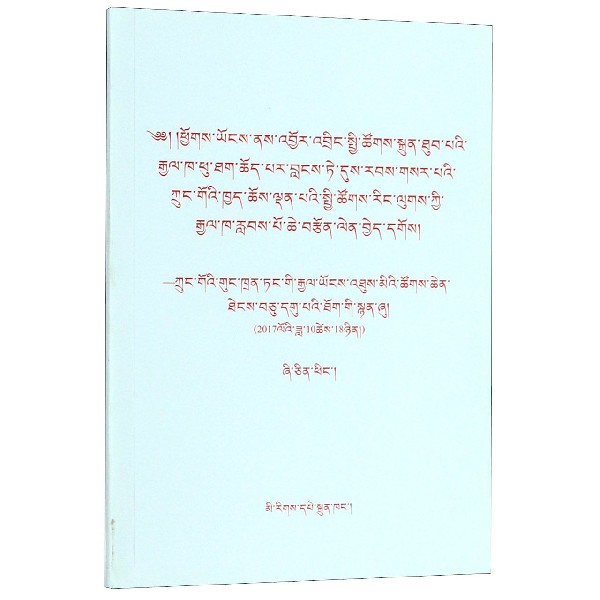 ༄༅། །ཕྱོགས་ཡོངས་ནས་འབྱོར་འབྲིང་སྤྱི་ཚོགས་སྐྲུན་ཐུབ་པའི་
རྒྱལ་ཁ་ཕུ་ཐག་ཆོད་པར་བླངས་ཏེ་དུས་རབས་གསར་པའི་
ཀྲུང་གོའི་ཁྱད་ཆོས་ལྡན་པའི་སྤྱི་ཚོགས་རིང་ལུགས་ཀྱི་
རྒྱལ་ཁ་རླབས་པོ་ཆེ་བརྩོན་ལེན་བྱེད་དགོས།
—ཀྲུང་གོའི་གུང་ཁྲན་ཏང་གི་རྒྱལ་ཡོངས་འཐུས་མིའི་ཚོགས་ཆེན་
ཐེངས་བཅུ་དགུ་པའི་ཐོག་གི་སྙན་ཞུ།
(2017ལོའི་ཟླ་10ཚེས་18ཉིན།)
ཞི་ཅིན་ཕིང་།
མི་རིགས་དཔེ་སྐྲུན་ཁང་།